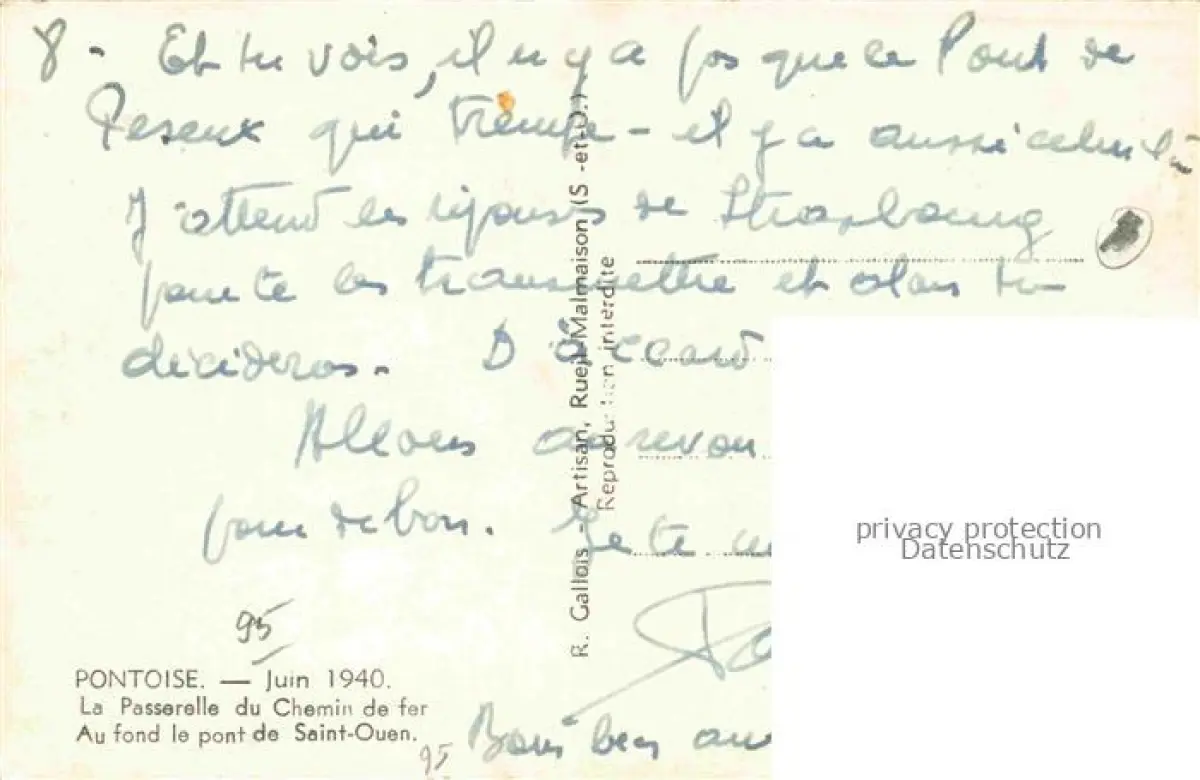 8. Et tu vois, il n'y a pas que le Pont de
qui trempe - il y a aussi celui là
J'attend les réponses de Strasbourg
pour te les transmettre et alors tu
décideras. D'accord
Allons au revoir
pour de bon. Je te
95
PONTOISE. — Juin 1940.
La Passerelle du Chemin de fer
Au fond le pont de Saint-Ouen.
95
Bons
R. Gallois - Artisan, Rueil-Malmaison (S.-et-O.)
Reproduction interdite
privacy protection
Datenschutz